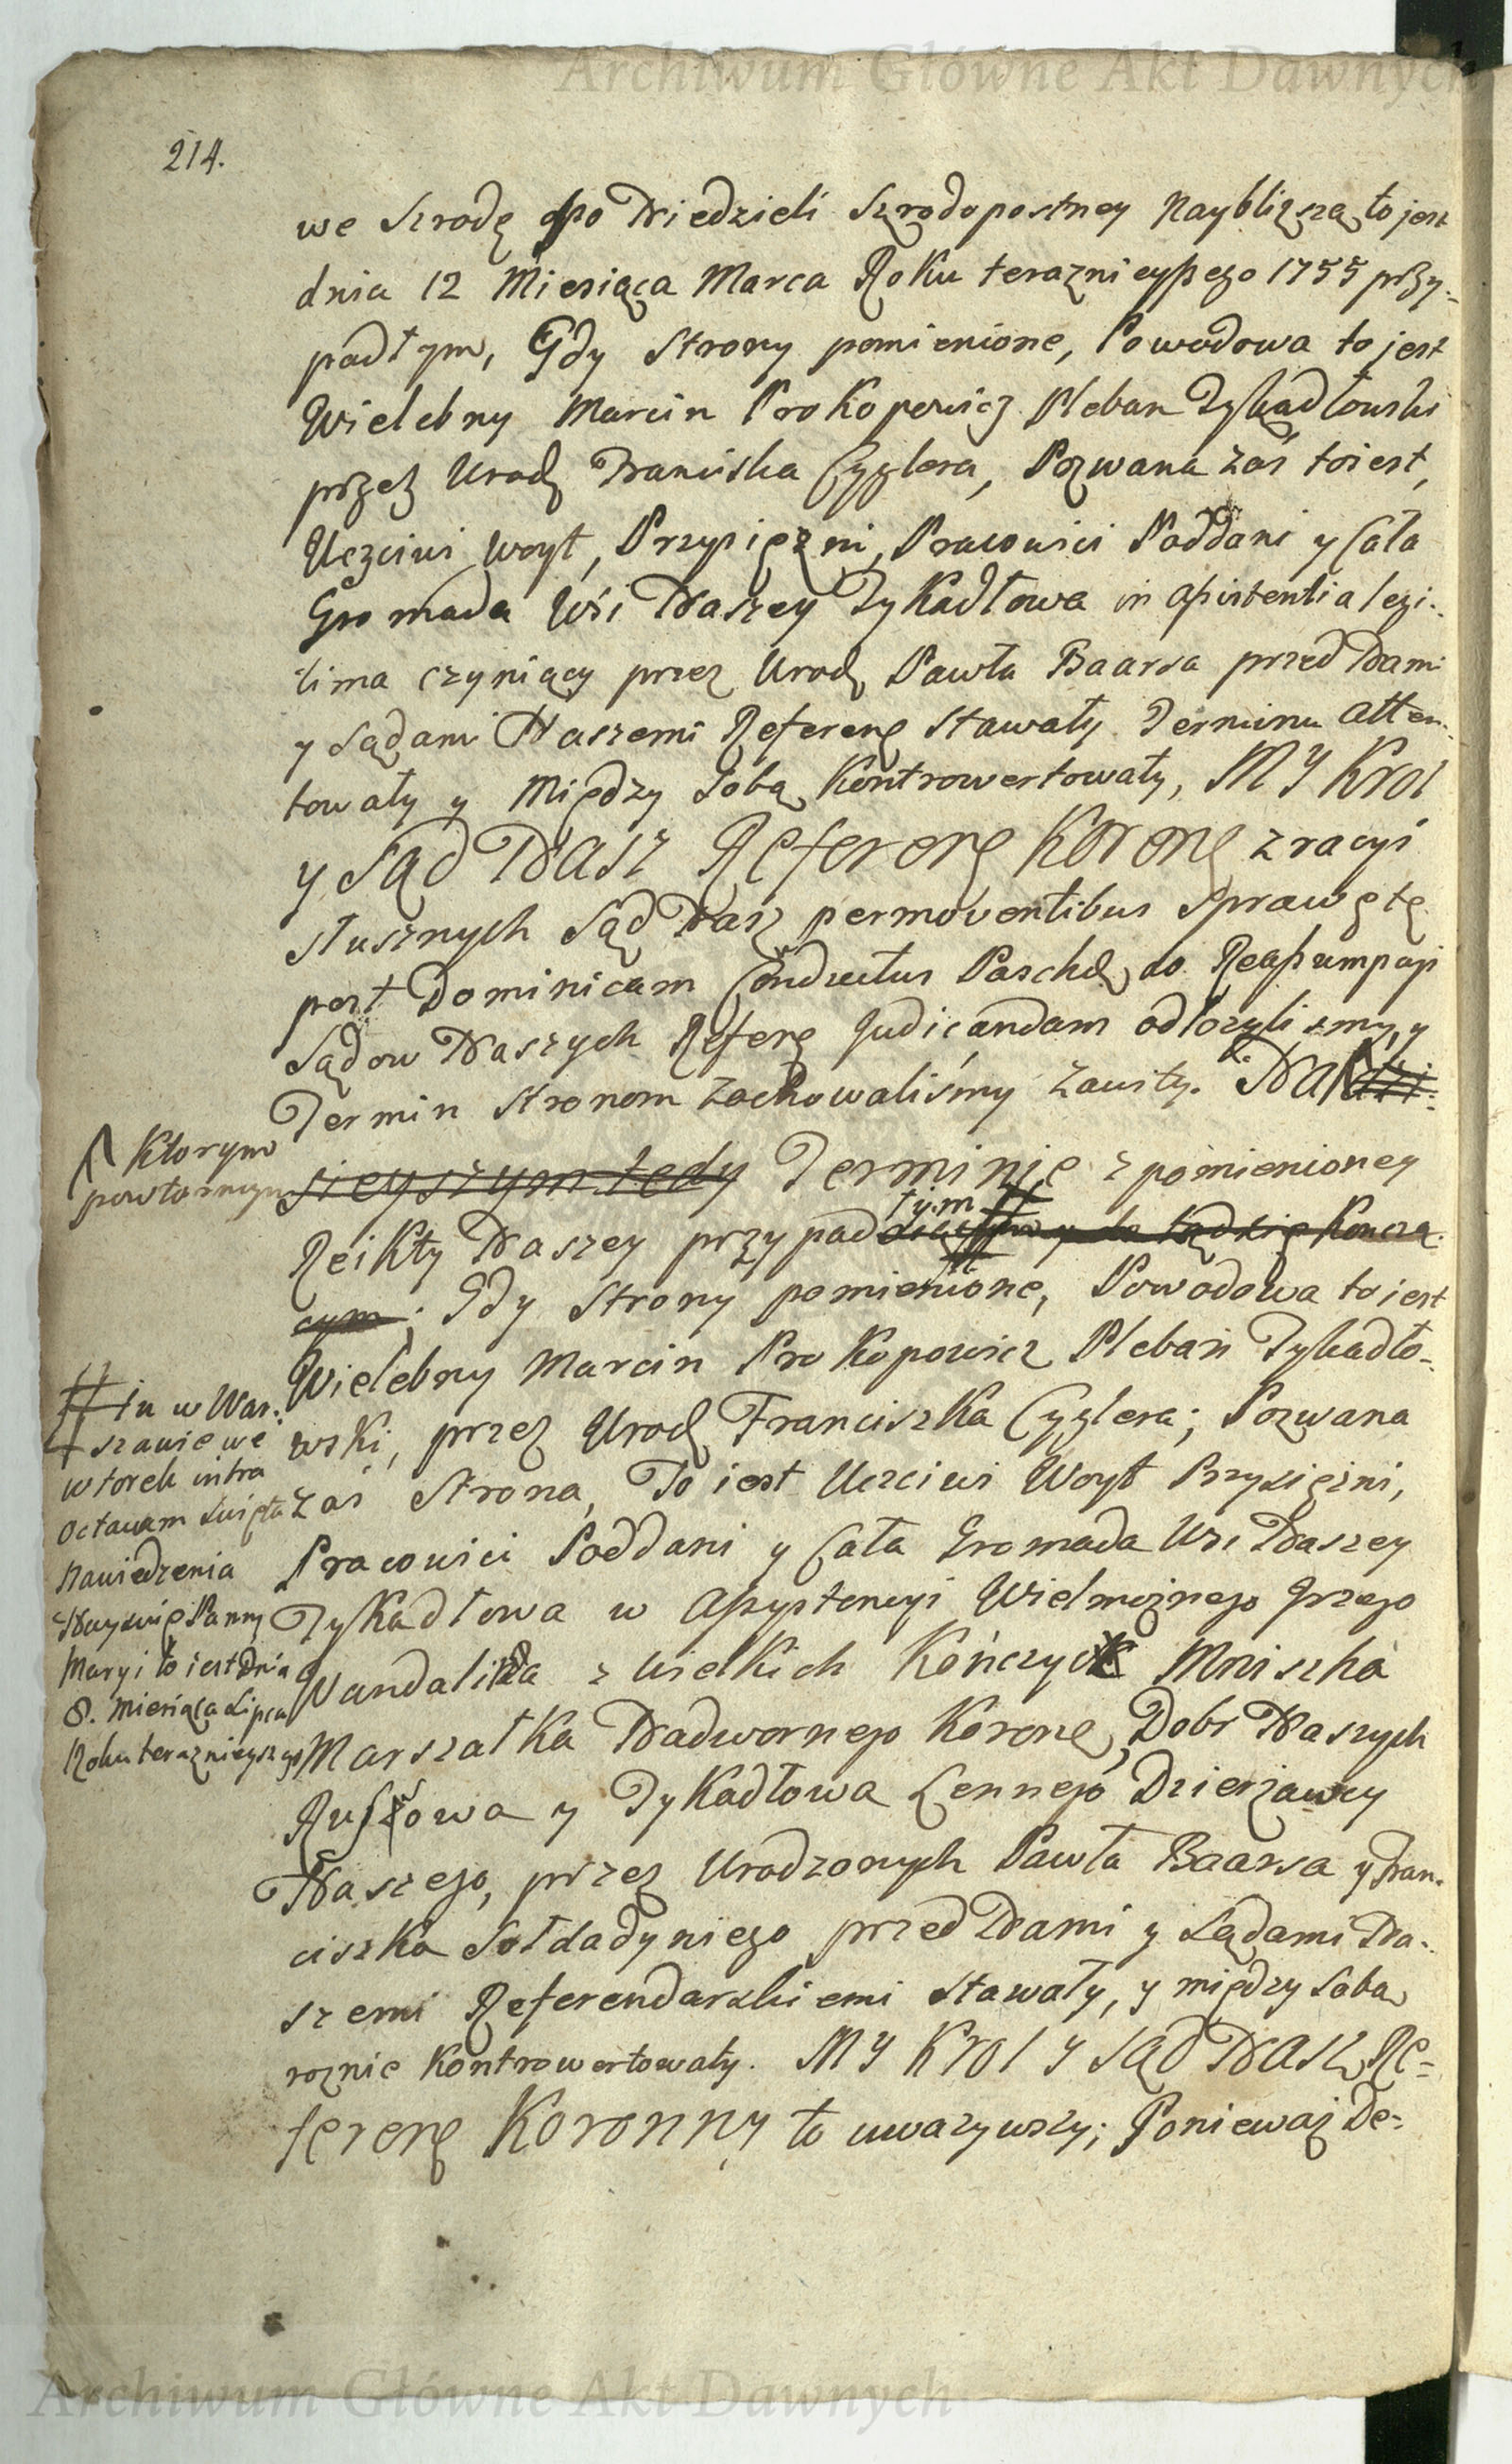 Archiwum Główne Akt Dawnych
214.
we Szrodę po Niedzieli Szrodopostney Naybliższą to jest
dnia 12 Miesiąca Marca Roku teraznieyszego 1755 przy-
padłym, Gdy Strony pomienione, Powodowa to jest
Wielebny Marcin Prokopowicz Pleban Zykadłowski
przez Urodz Franciszka Cyglera, Pozwana zaś to iest,
Uczciwi Woyt, Przysiężni, Pracowici Poddani y Cała
Gromada Wśi Naszey Zykadłowa in assistentia legi-
tima czyniący przez Urodz Pawła Baarsa przed Nami
y Sądami Naszemi Referenę Stawały Terminu atten-
towały y Między Sobą Kontrowertowały, MY Krol
y Sąd Nasz Referenę Koronę z racyi
słusznych Sąd Nasz permoventibus Sprawę tę
post Dominicam Conductus Paschę do Reassumpcyi
Sądow Naszych Referę Judicandam odłożyliśmy, y
Termin Stronom zachowaliśmy zawity. Na dzi-
Ktorym
powtornym
sieyszym tedy Terminie z pomienioney
tym
Rejkty Naszey przypad y do Sądzię Koncza-
cym; Gdy Strony pomienione, Powodowa to iest
Wielebny Marcin Prokopowicz Pleban Zykadło-
wski, przez Urodz Franciszka Cyglera; Pozwana
zaś Strona, To iest Uczciwi Woyt Przysiężni,
Pracowici Poddani y Cała Gromada Wsi Naszey
Zykadłowa w Assystencyi Wielmożnego Jrzego
Wandalina z Wielkich Kończyc Mniszka
Marszałka Nadwornego Koronę, Dobr Naszych
Ruszowa y Zykadłowa Lennego Dzierżawcy
Naszego, przez Urodzonych Pawła Baarsa y Fran-
ciszka Sołdadyniego przed Nami y Sądami Na-
szemi Referendarskiemi Stawały, y między Sobą
roznie Kontrowertowały. MY Krol y Sąd Nasz Re-
ferenę Koronny to uważywszy; Ponieważ De-
# tu w War-
szawie we
wtorek intra
Octavam Święta
Nawiedzenia
Nayświę Panny
Maryi to iest Dnia
8. Miesiąca Lipca
Roku teraznieyszego
Archiwum Główne Akt Dawnych